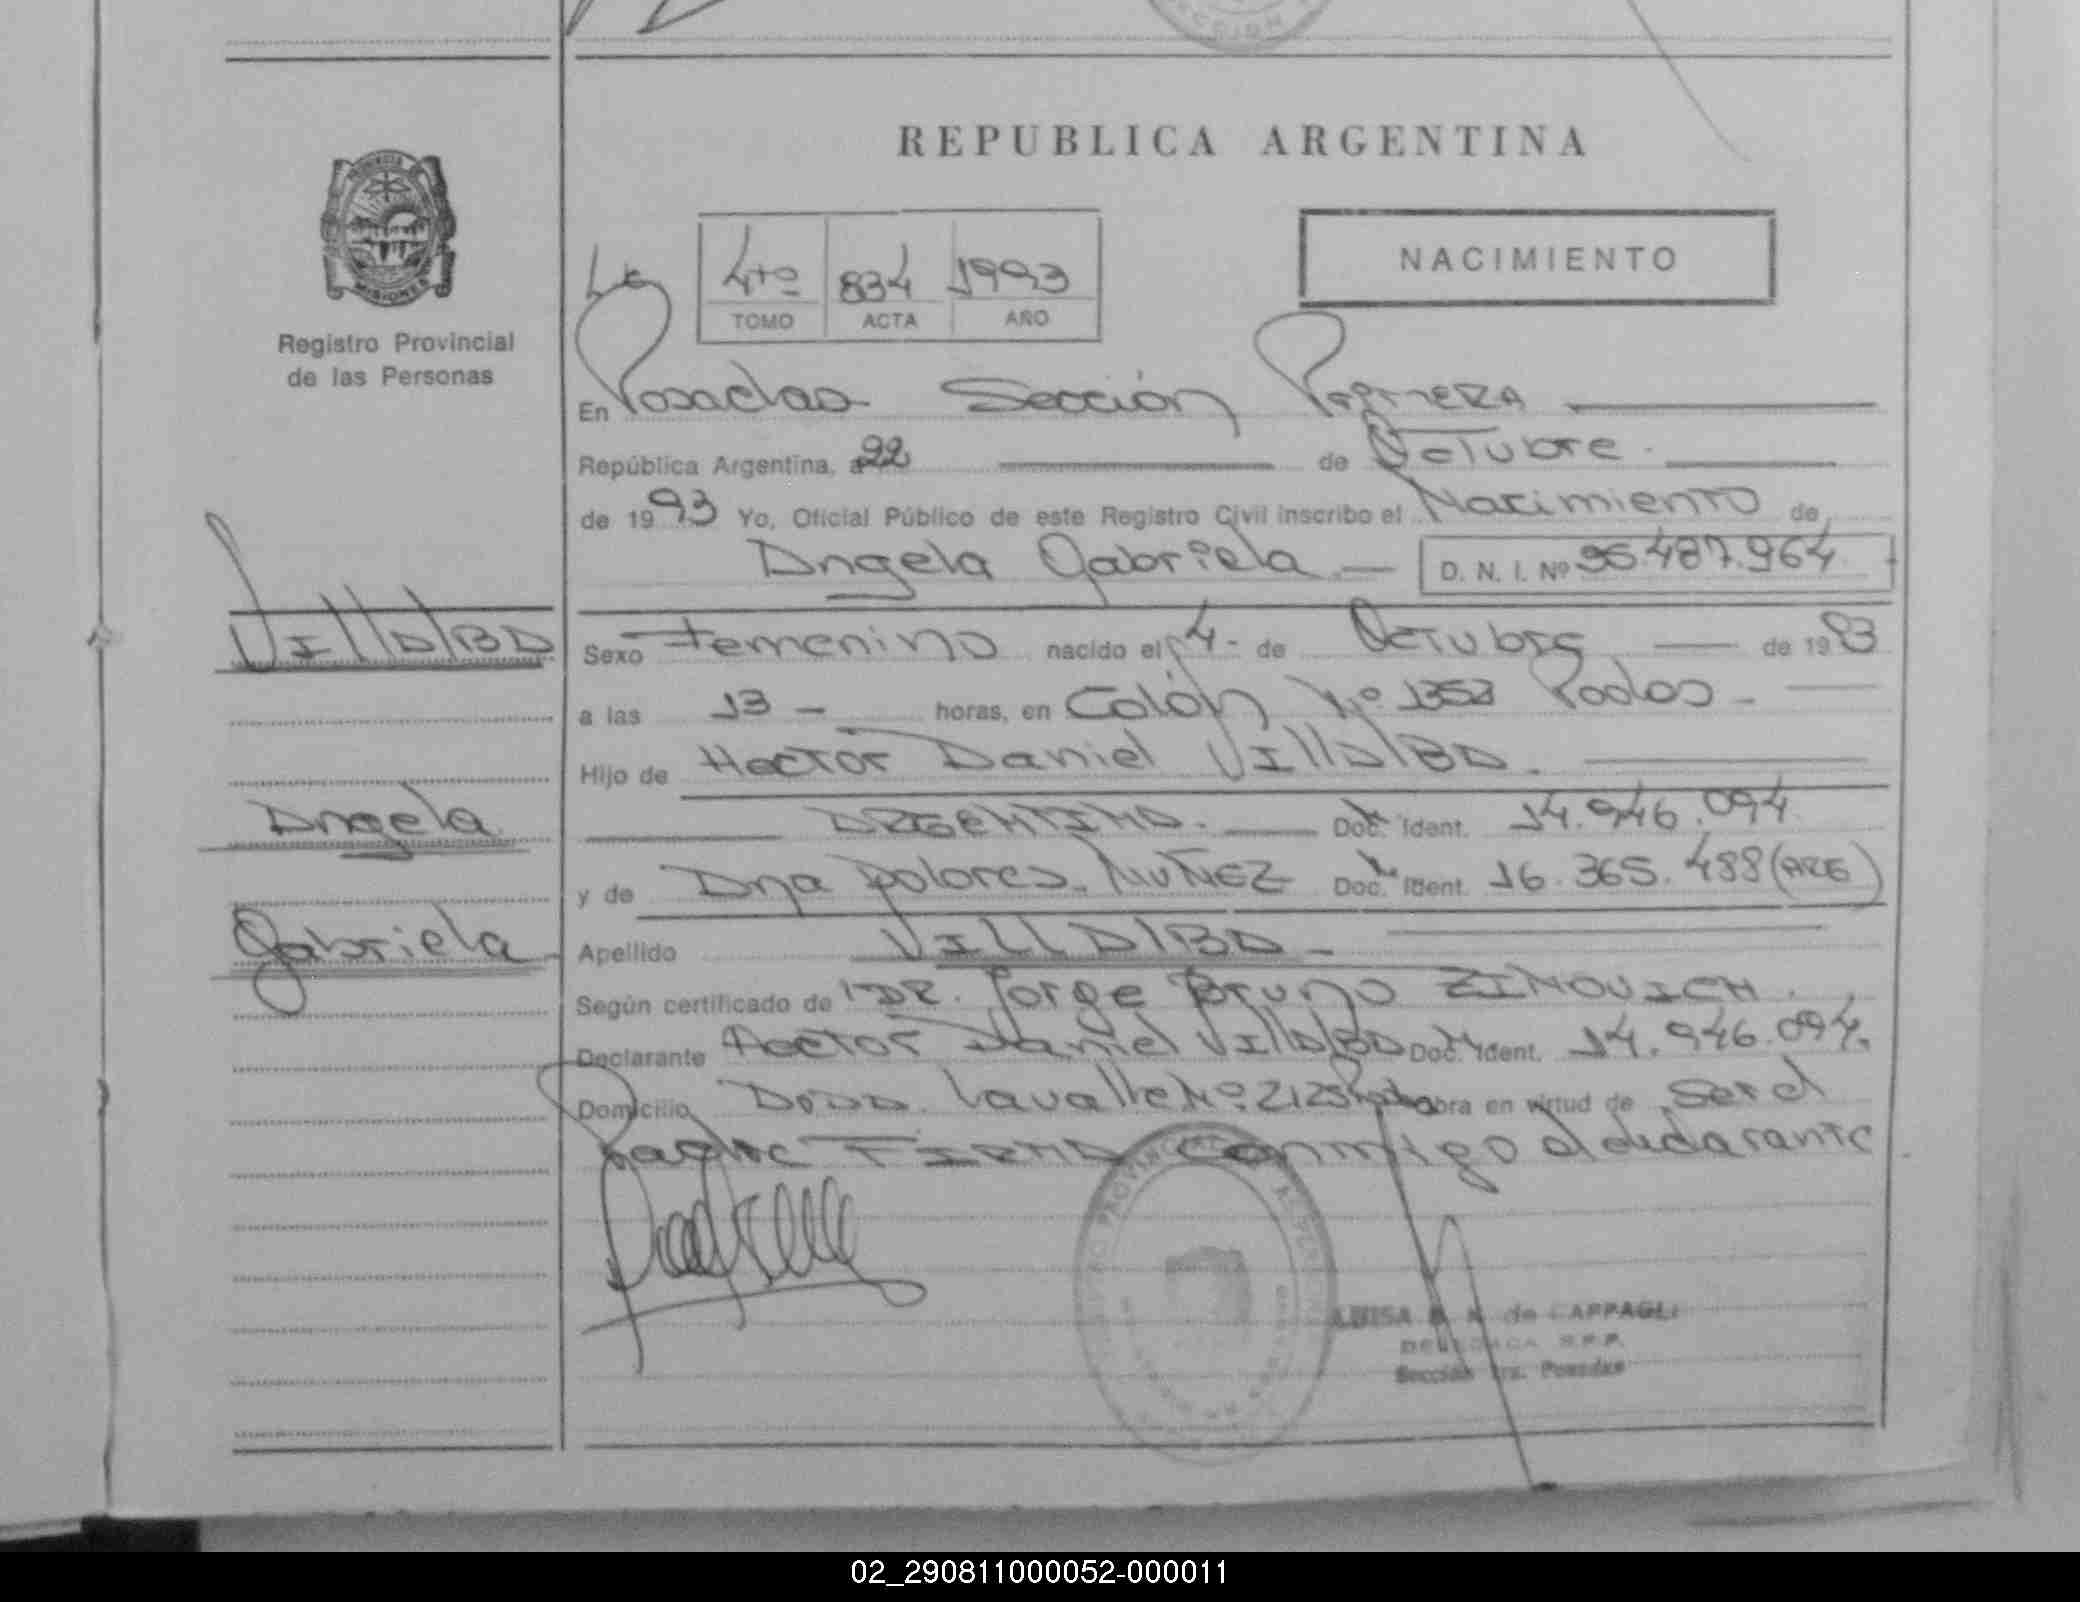 REPUBLICA ARGENTINA
PROVINCIA
MISIONES
Registro Provincial
de las Personas
4to 834 1993
TOMO ACTA AÑO
NACIMIENTO
En Posadas Sección Primera
República Argentina, a 22 de Octubre
de 1993 Yo, Oficial Público de este Registro Civil inscribo el Nacimiento de
Angela Gabriela D. N. I. Nº 487.964
VIllAlBA
Sexo Femenino nacido el 4 de Octubre de 1993
a las 13 horas, en Colón Nº 1353 Pdas
Hijo de Hector Daniel VIllAlBA
Angela
ARGENTINA. Doc. Ident. 14.946.094
y de Dña Dolores NUÑEZ Doc. Ident. 16.365.488 (ARG)
Gabriela
Apellido VILLAlBA
Según certificado de DR. Jorge Bruno ZINOVICH.
Declarante Hector Daniel VIllAlBA Doc. Ident. 14.946.094.
Domicilio Lavalle Nº 2125 obra en virtud de ser el
Padre FIRMA Conmigo el declarante
LUISA de CAPPAGLI
DELEGADA R.P.P.
Sección 1ra. Posadas
02_290811000052-000011